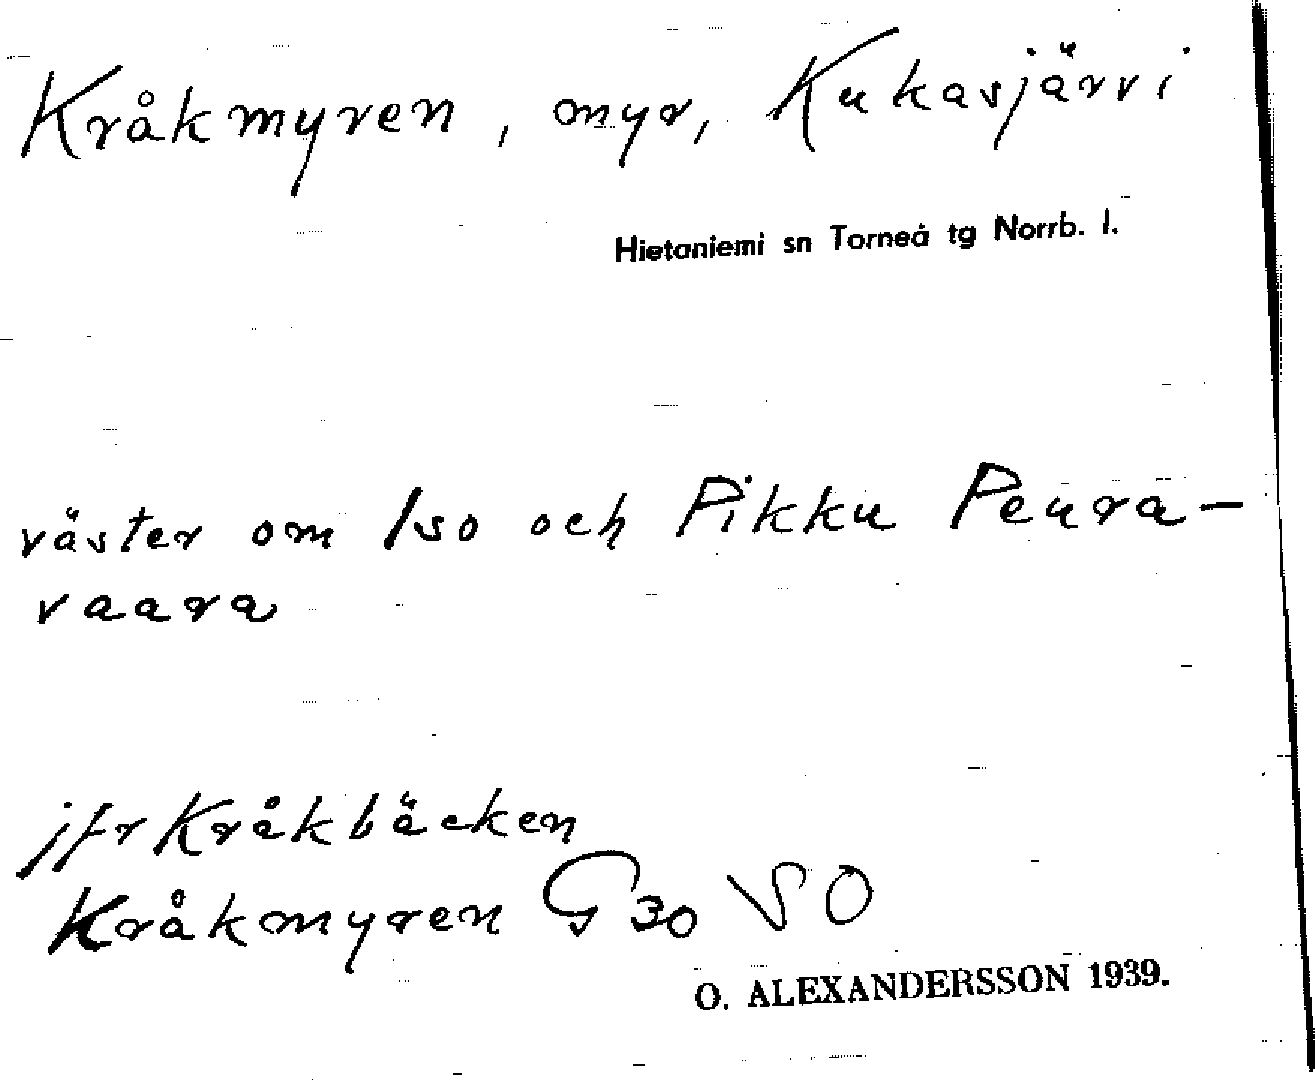 Kråkmyren, myr, Kukasjärvi
Hietaniemi sn Torneå tg Norrb. l.
väster om Iso och Pikku Peura-
vaara
jfr Kråkbäcken
Kråkmyren G 30 SO
O. ALEXANDERSSON 1939.